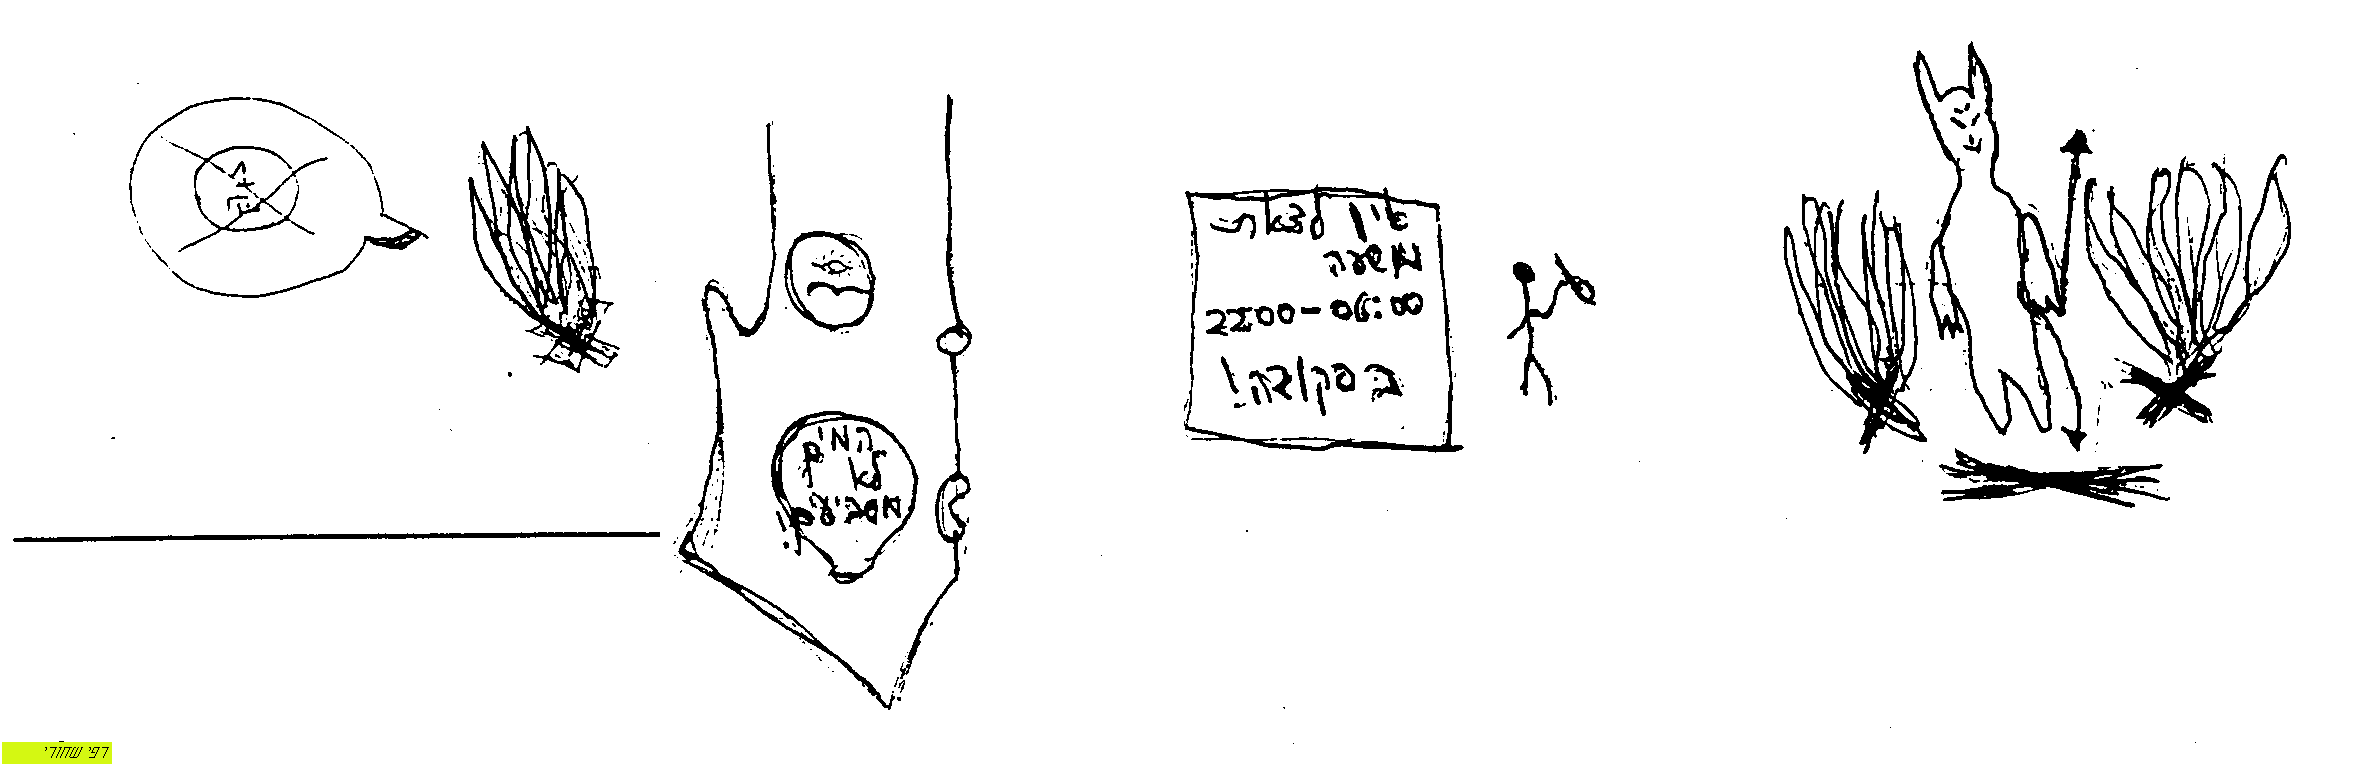 אין לצאת
משעה
22:00-06:00
בפקודה!
המים
לא
משביעים!
רפי שחורי